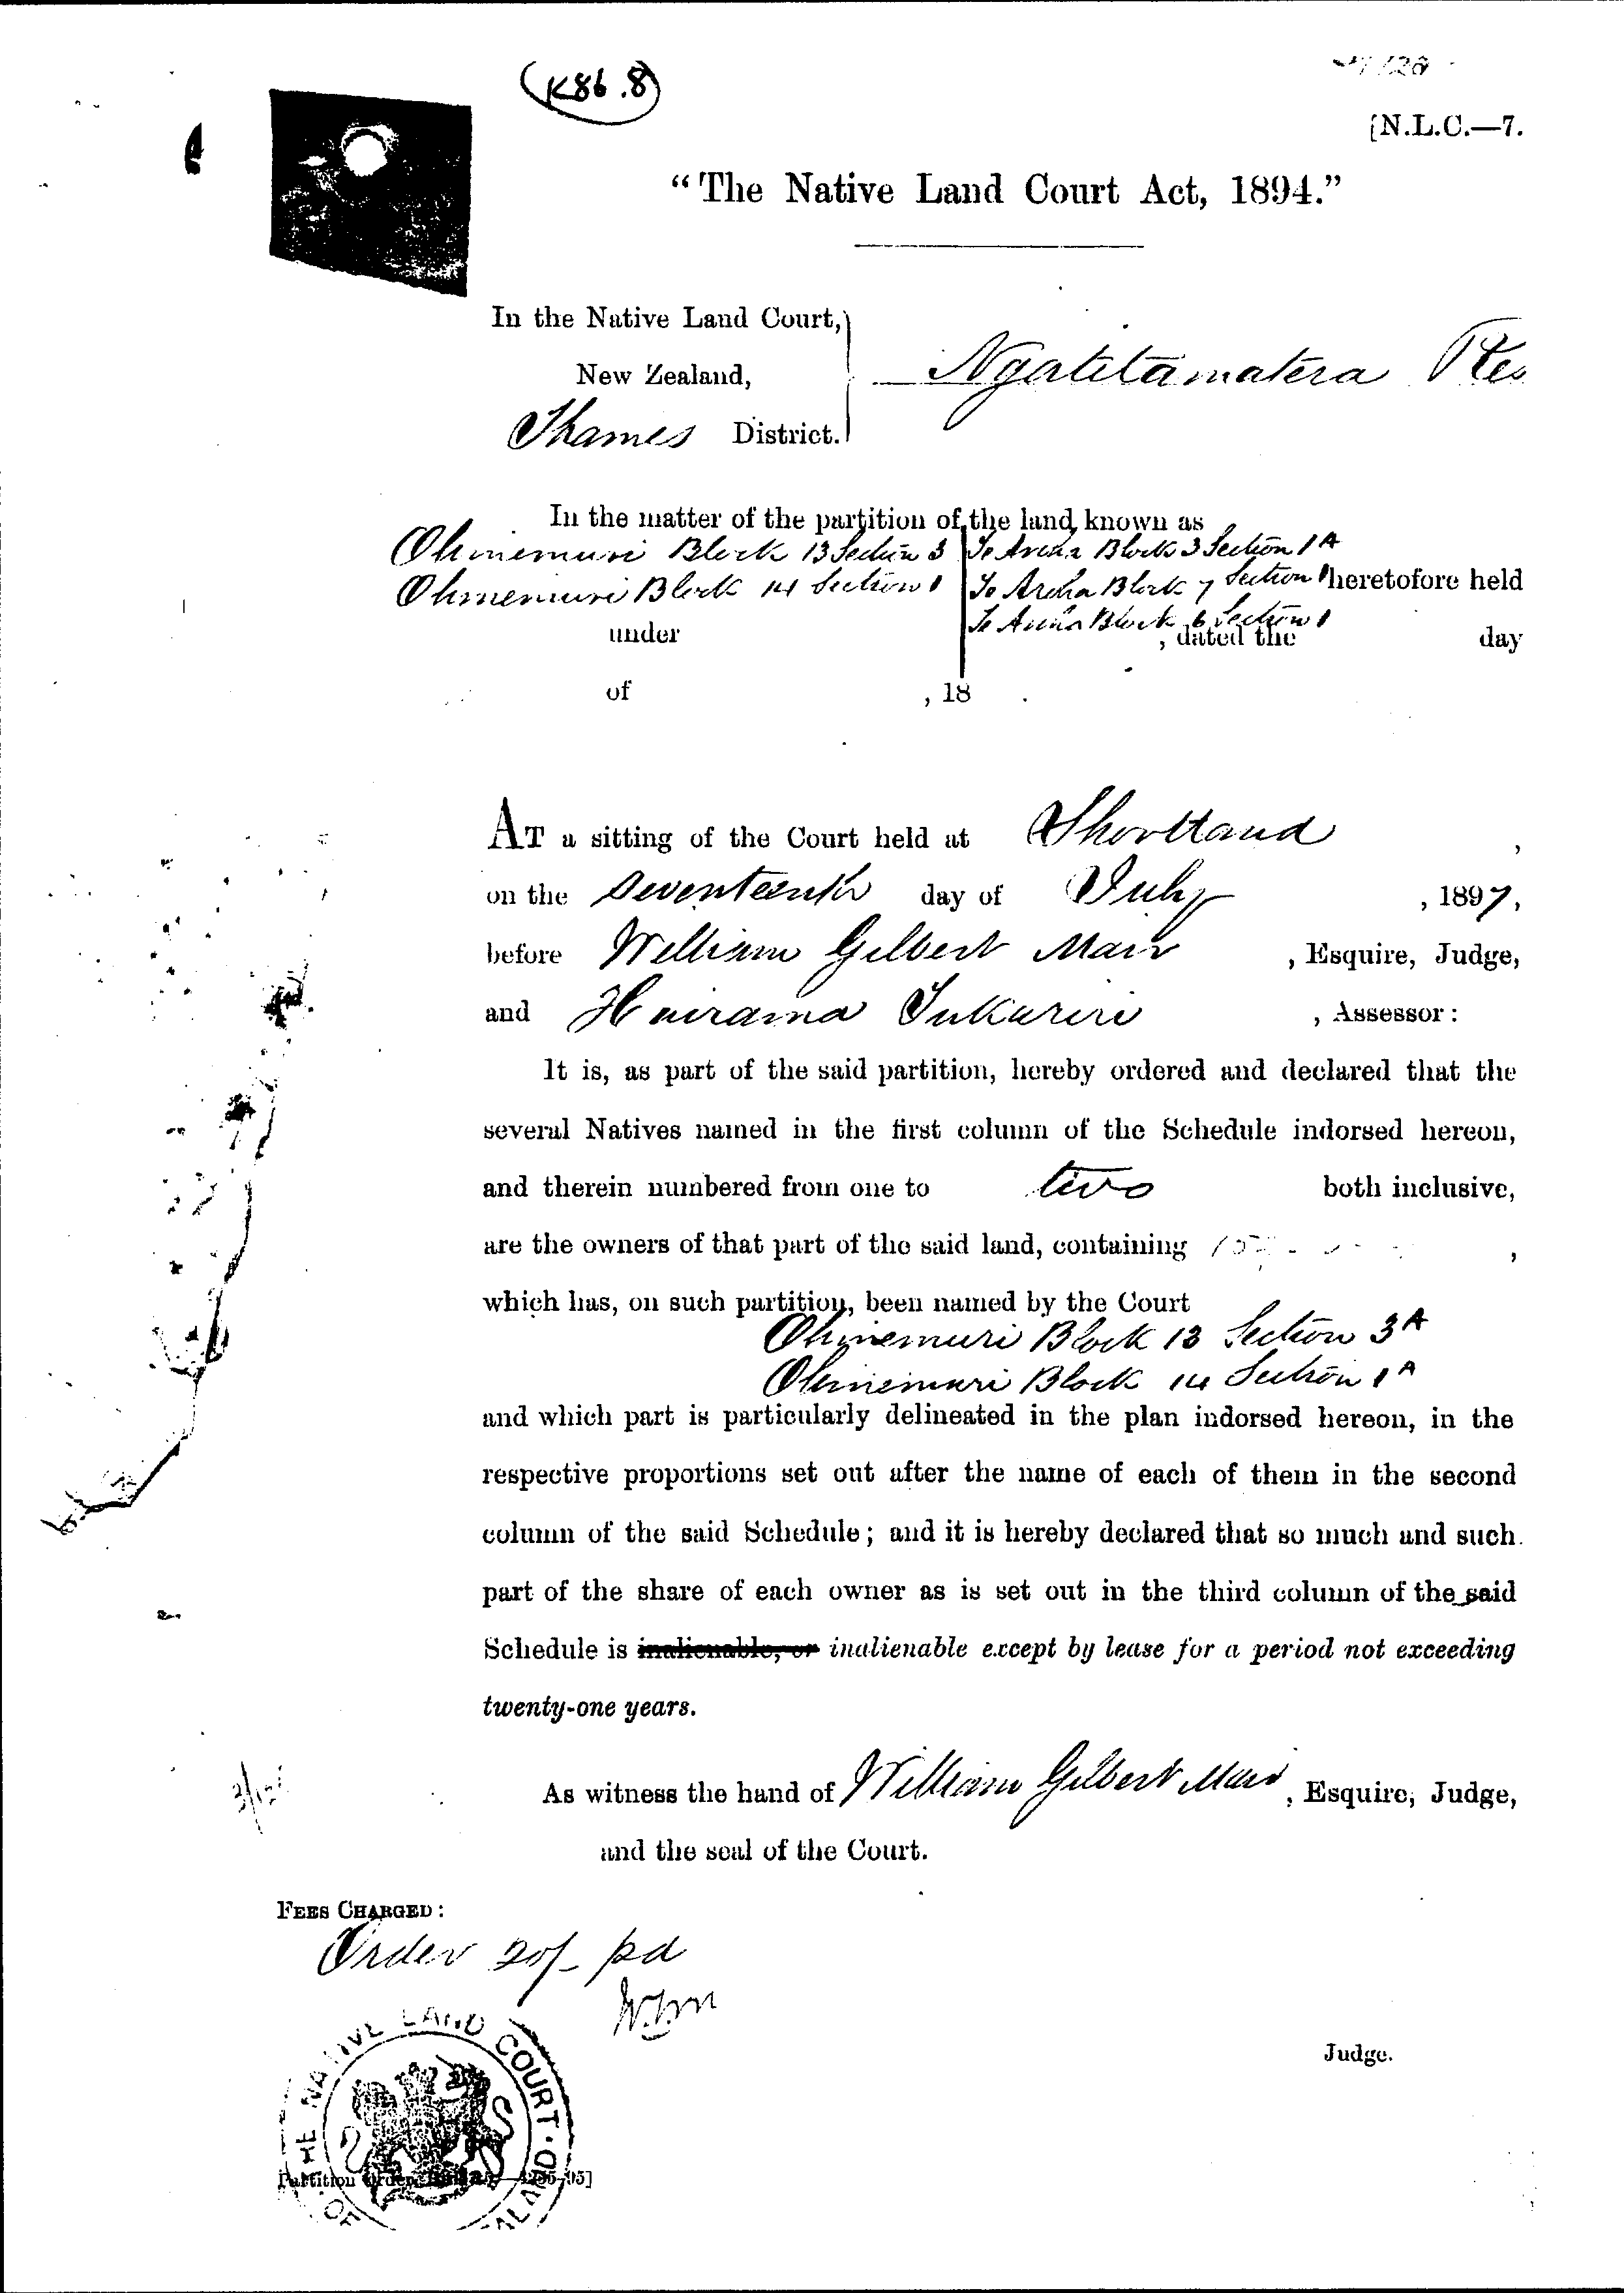 (K86.8)
[N.L.C.—7.
“The Native Land Court Act, 1894.”
In the Native Land Court,
New Zealand,
Thames District.
Ngatitamatera Res
In the matter of the partition of the land known as
Ohinemuri Block 13 Section 3
Te Aroha Block 3 Section 1A
Ohinemuri Block 14 Section 1
Te Aroha Block 7 Section 1 heretofore held
Te Aroha Block 6 Section 1
under , dated the day
of , 18 .
At a sitting of the Court held at Shortland ,
on the Seventeenth day of July , 1897,
before William Gilbert Mair , Esquire, Judge,
and Hairama Tukariri , Assessor:
It is, as part of the said partition, hereby ordered and declared that the
several Natives named in the first column of the Schedule indorsed hereon,
and therein numbered from one to two both inclusive,
are the owners of that part of the said land, containing ,
which has, on such partition, been named by the Court
Ohinemuri Block 13 Section 3A
Ohinemuri Block 14 Section 1A
and which part is particularly delineated in the plan indorsed hereon, in the
respective proportions set out after the name of each of them in the second
column of the said Schedule; and it is hereby declared that so much and such
part of the share of each owner as is set out in the third column of the said
Schedule is inalienable, or inalienable except by lease for a period not exceeding
twenty-one years.
As witness the hand of William Gilbert Mair, Esquire, Judge,
and the seal of the Court.
Fees Charged:
Order 20/- pd
Judge.
OF THE NATIVE LAND COURT
Partition Order